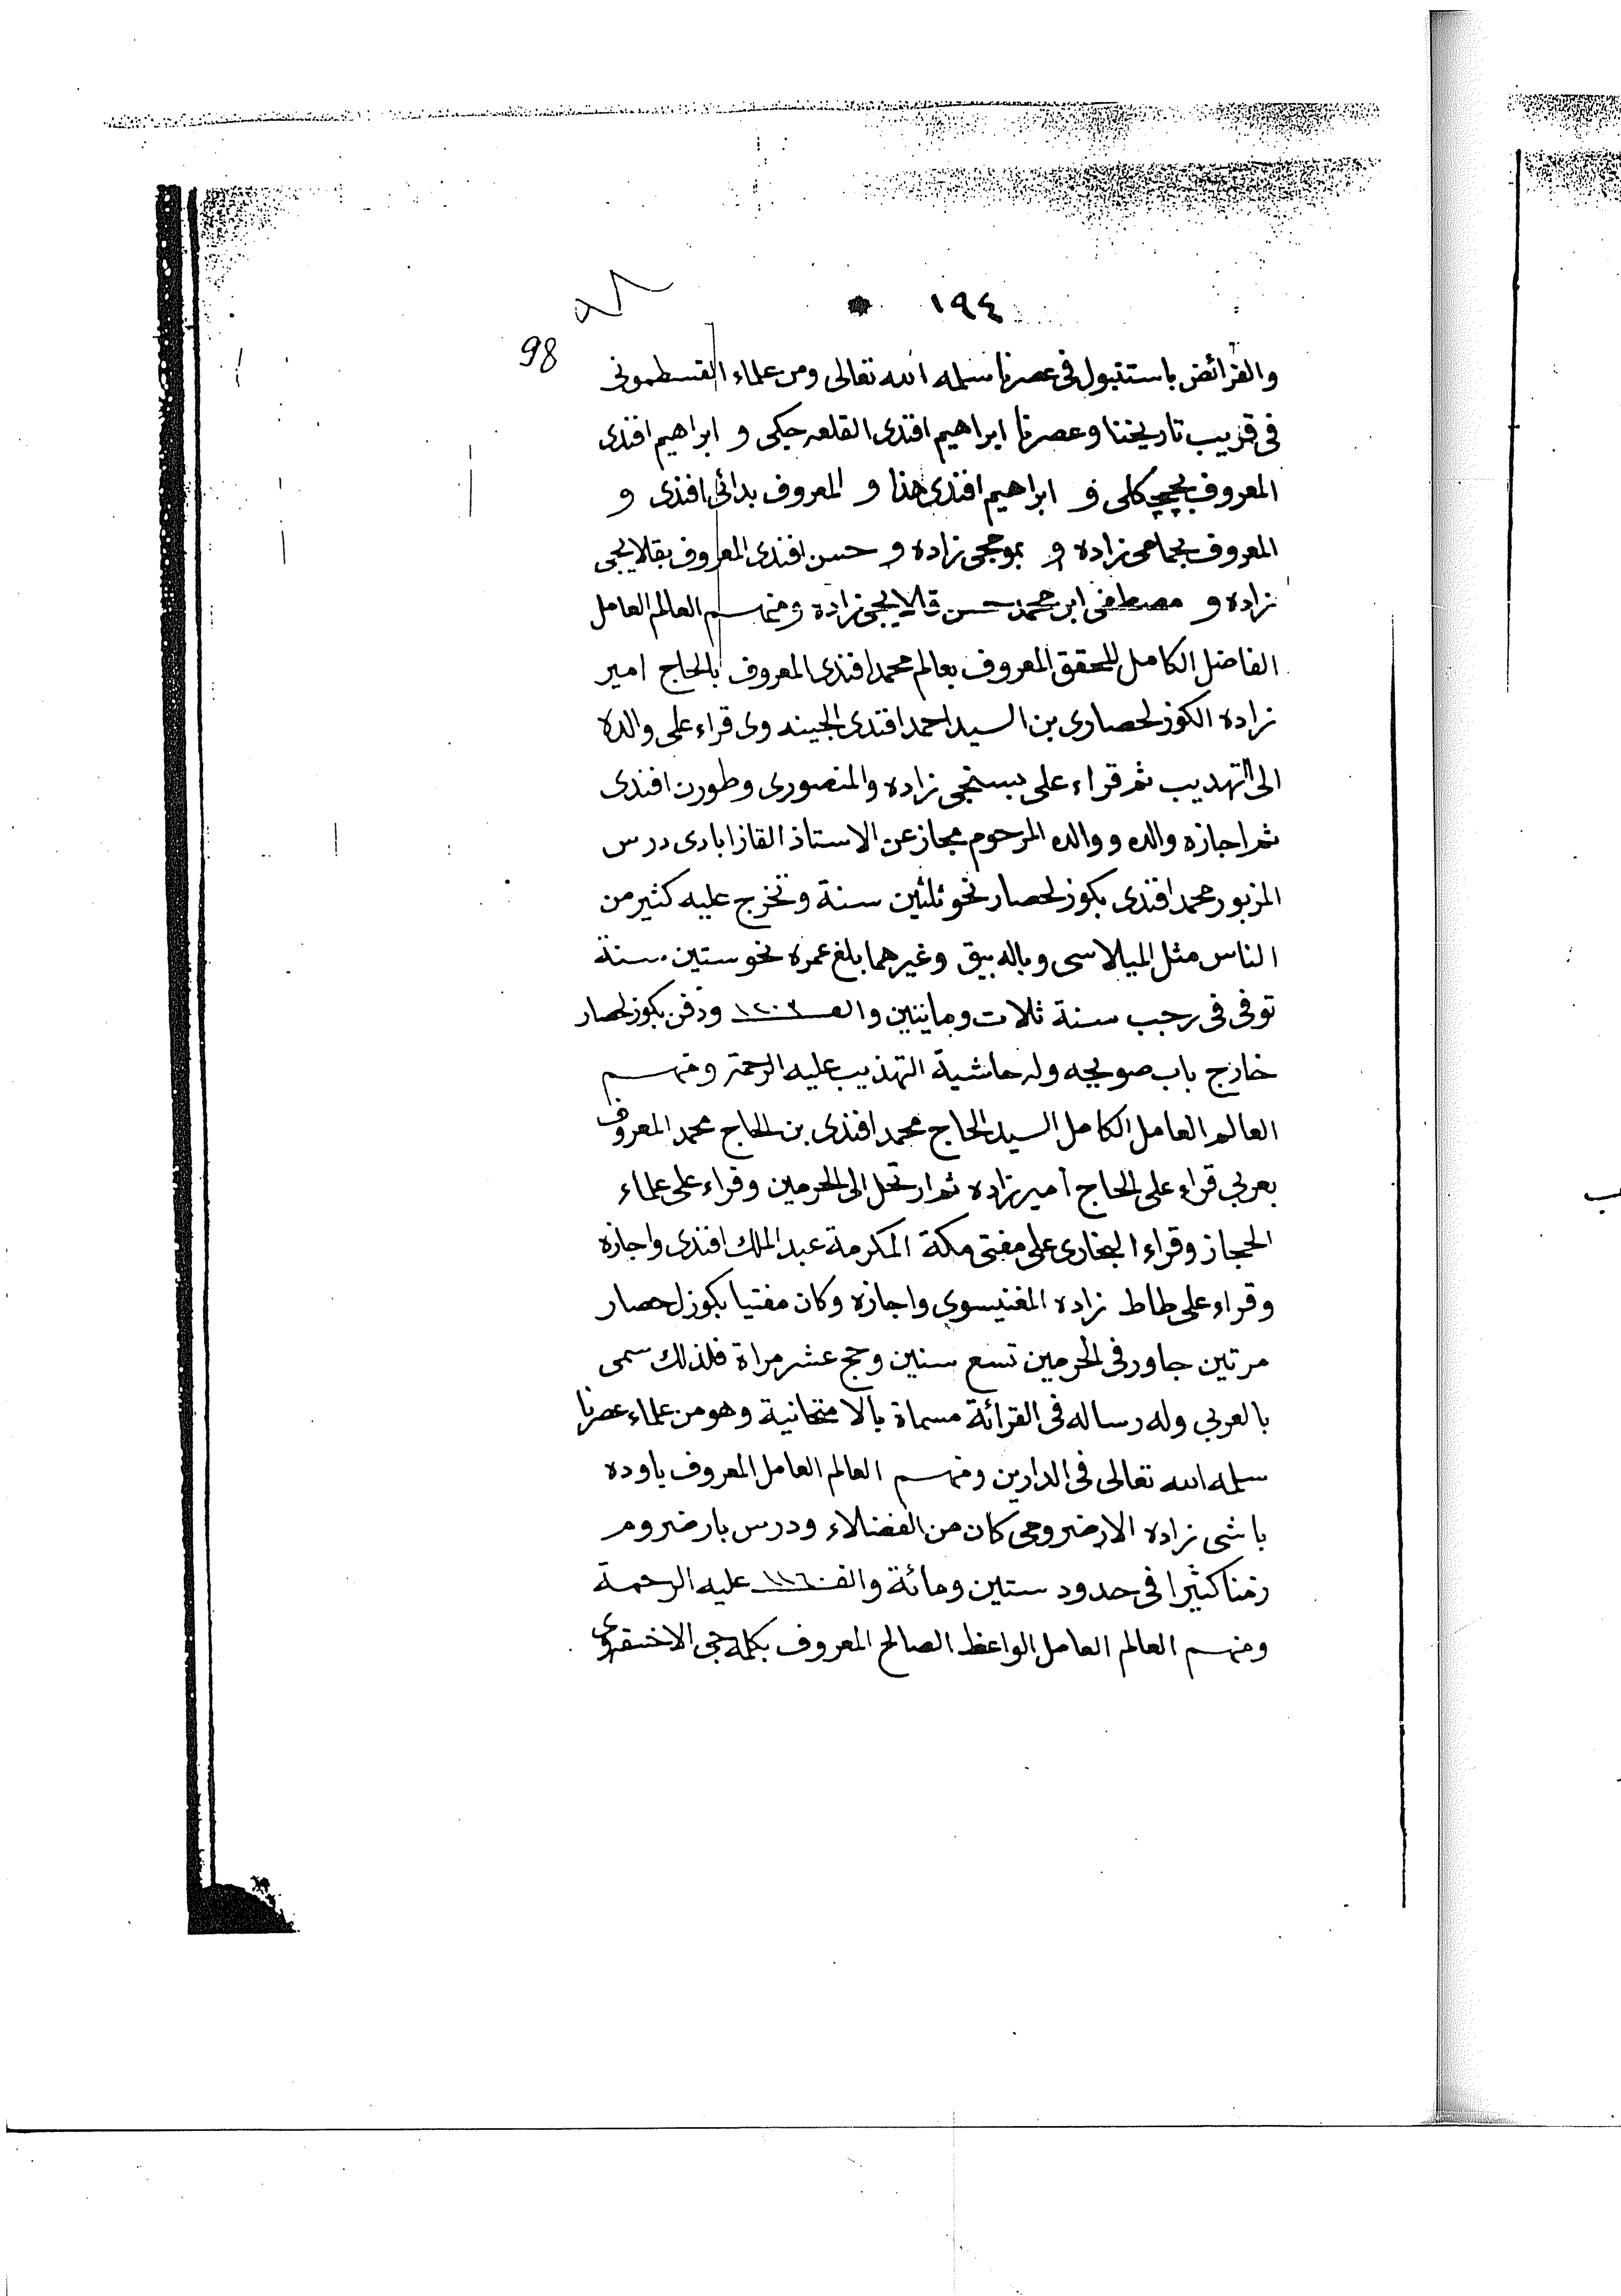 ١٩٤
98
والفرائض باستنبول فى عصرنا سلمه الله تعالى ومن علماء القسطمونى
فى قريب تاريخنا وعصرنا ابراهيم افندى القلعه جكى و ابراهيم افندى
المعروف و ابراهيم افندى هذا و المعروف بدائى افندى و
المعروف بجماعى زاده و بموجى زاده و حسن افندى المعروف بقلايجى
زاده و مصطفى ابن محمد حسن قالايجى زاده ومنهم العالم العامل
الفاضل الكامل المحقق المعروف بعالم محمد افندى المعروف بالحاج امير
زاده الكوزلحصارى بن السيد احمد افندى الجينه وى قراء على والده
الى التهديب ثم قراء على بسنجى زاده والمنصورى وطورن افندى
ثم اجازه والده ووالده المرحوم مجاز عن الاستاذ القازابادى درس
المزبور محمد افندى بكوزلحصار نحو ثلثين سنة وتخرج عليه كثير من
الناس مثل الميلاسى وباله بيق وغيرهما بلغ عمره نحو ستين سنة
توفى فى رجب سنة ثلات ومايتين والف ١٢٠٣ ودفن بكوزلحصار
خارج باب صوبجه وله حاشية التهذيب عليه الرحمة ومنهم
العالم العامل الكامل السيد الحاج محمد افندى بن الحاج محمد المعروف
بعربى قراء على الحاج امير زاده ثم ارتحل الى الحرمين وقراء على علماء
الحجاز وقراء البخارى على مفتى مكة المكرمة عبد الملك افندى واجازه
وقراء على طاط زاده المغنيسوى واجازه وكان مفتيا بكوزلحصار
مرتين جاور فى الحرمين تسع سنين وحج عشر مراة فلذلك سمى
بالعربى وله رساله فى القرائة مسماة بالامتحانية وهو من علماء عصرنا
سلمه الله تعالى فى الدارين ومنهم العالم العامل المعروف باوده
باشى زاده الارضرومى كان من الفضلاء ودرس بارضروم
زمنا كثيرا فى حدود ستين ومائة والف ١١٦٠ عليه الرحمة
ومنهم العالم العامل الواعظ الصالح المعروف بكله جى